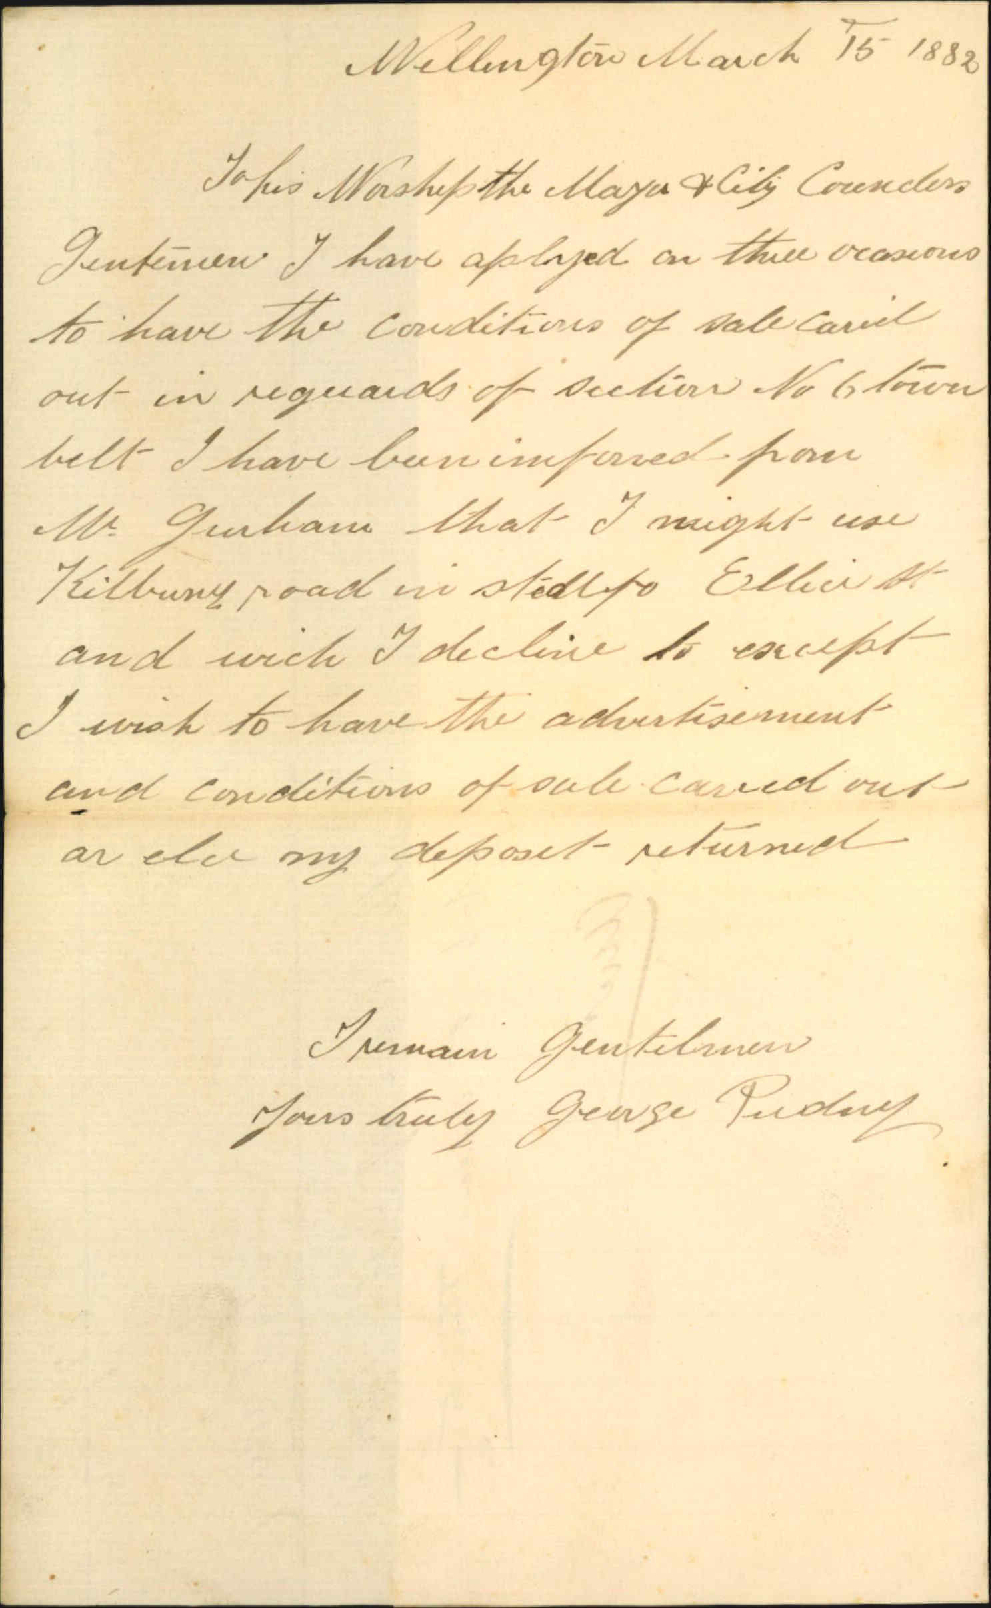 Wellington March 15 1882
To his Worship the Mayor & City Councelors
Gentemen I have aplyed on three ocasions
to have the conditions of sale caried
out in reguards of section No 6 town
belt I have been imformed from
Mr. Gurham that I might use
Kilburny road in sted fo Ellice St
and wich I decline to except
I wish to have the advertisement
and conditions of sale carried out
or else my deposet returned
I remain Gentelmen
Yours truly George Pudney